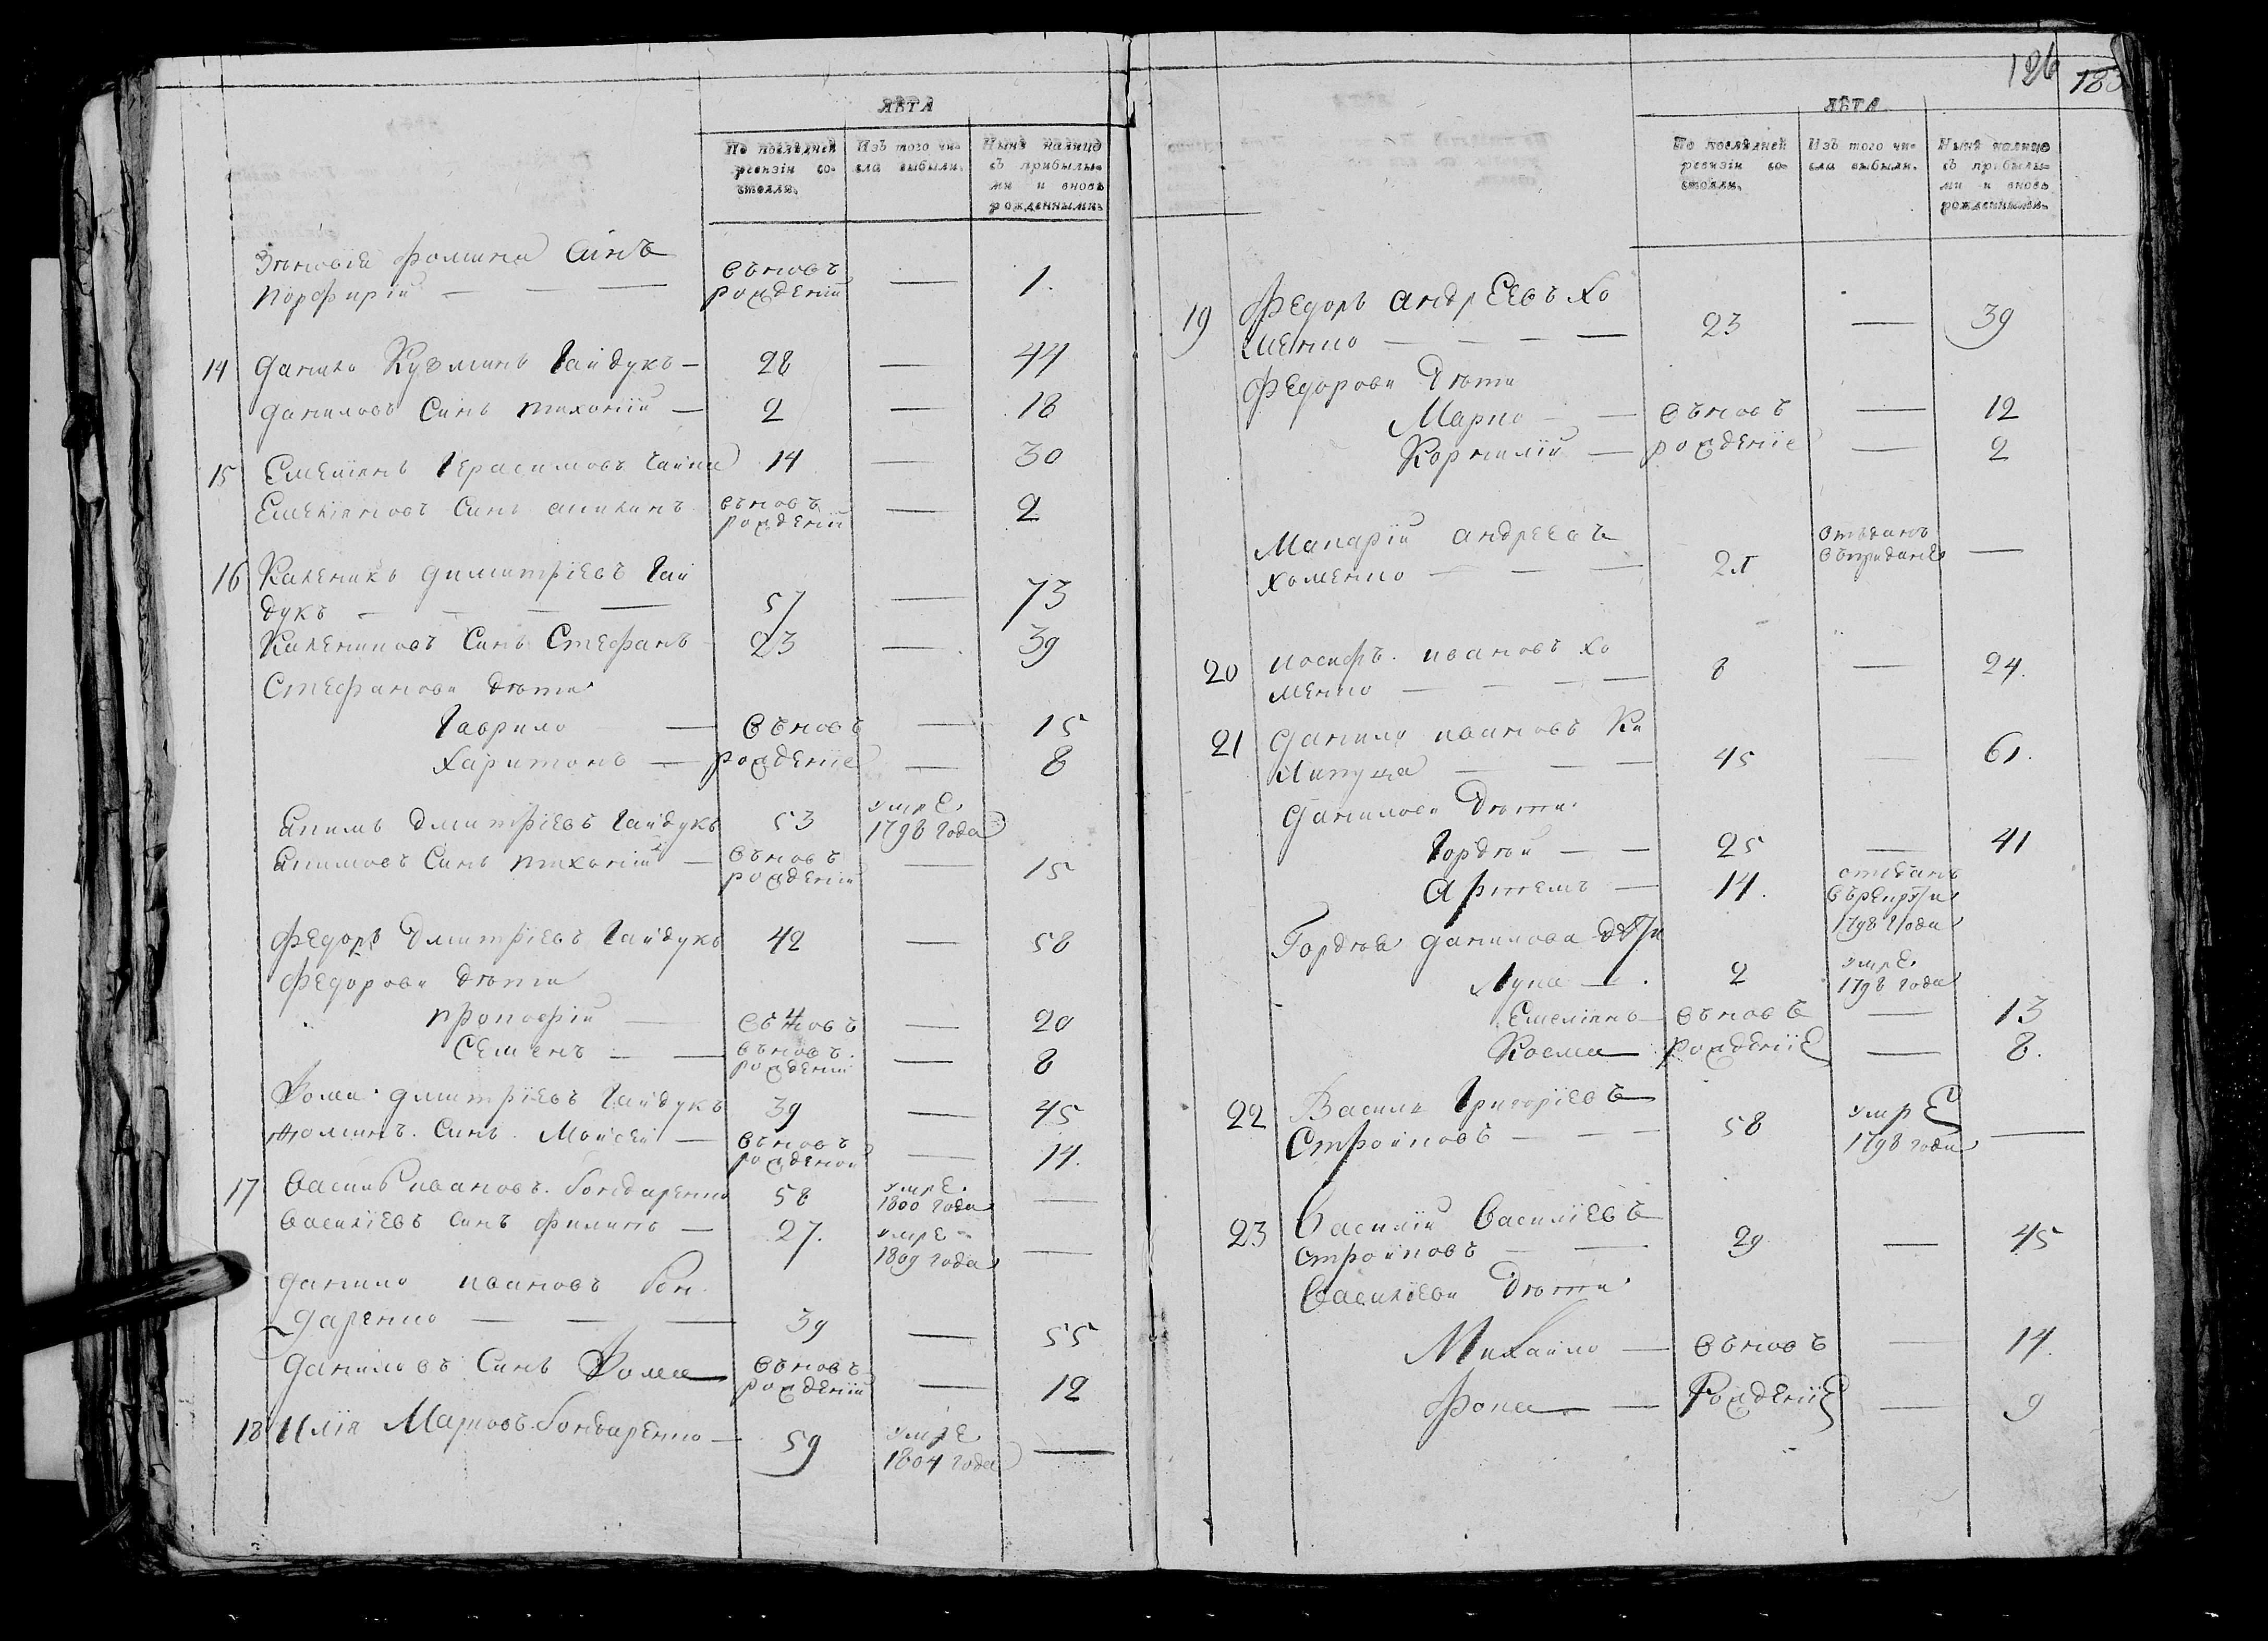 ЛѢТА
По послѣдней ревизіи со- стояли.
Изъ того чи- сла выбыли.
Нынѣ налицо съ прибылы- ми и вновь рожденными.
Зѣновія Фомина Синъ въновъ
Порфирій — — — рожденій — 1.
14 Данило Кузминъ Гайдукъ — 28 — 44
Даниловъ Синъ Тихоній — 2 — 18
15 Емеліянъ Герасимовъ 14 — 30
Емеліяновъ Синъ въновъ рожденій — 2
16 Каленикъ Димитріевъ Гай
дукъ — — — — 57 — 73
Калениковъ Синъ Стефанъ 23 — 39
Стефанови Дѣти
Гаврило — въновъ — 15
Харитонъ — рожденіе — 8
Екимъ Дмитріевъ Гайдукъ 53 умре 1798 года
Екимовъ Синъ Тихоній — въновъ рожденій — 15
Федоръ Дмитріевъ Гайдукъ 42 — 58
Федорови Дѣти
Прокофій — 4 въновъ — 20
Семенъ — — въновъ рожденій — 8
Фома Дмитріевъ Гайдукъ 39 — 45
Фоминъ Синъ Мойсей — въновъ рожденой — 14.
17 Василь Ивановъ Бондаренко 58 умре 1800 года —
Василіевъ Синъ Филипъ — 27. умре 1809 года —
Данило Ивановъ Бон
даренко — — — 39 — 55
Даниловъ Синъ Фома въновъ рожденій — 12
18 Илія Марковъ Бондаренко — 59 умре 1804 года —
126 183
ЛѢТА
По послѣдней ревизіи со- стояли.
Изъ того чи- сла выбыли.
Нынѣ налицо съ прибылы- ми и вновь рожденными.
19 Федоръ Андреевъ Хо
менко — — — — 23 — 39
Федорови Дѣти
Марко — — въновъ — 12
Корнилій — рожденіе — 2
Макарій Андреевъ отъданъ
Хоменко — — — 21 въприданіе —
20 Иосифъ Ивановъ Хо
менко — — — — 8 — 24.
21 Данило Ивановъ Ки
липуща — — — 45 — 61.
Данилови Дѣти
Гордѣй — — 25 — 41
Артемъ — 14. отъданъ върекруты 1798 года
Гордѣя Данилова дѣти
Лука — 2 умре 1798 года
Емеліянъ — въновъ — 13
Косма рожденіе — 8.
22 Василь Григоріевъ умре
Стройковъ — — — 58 1798 года —
23 Василій Василіевъ
Стройковъ — — 29 — 45
Василіеви Дѣти
Михайло — въновъ — 14.
Фока — рожденіе — 9